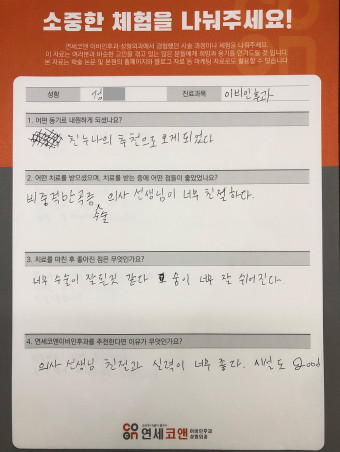 소중한 체험을 나눠주세요!
연세코앤 이비인후과·성형외과에서 경험했던 시술 과정이나 체험을 나눠주세요.
이 자료는 여러분과 비슷한 고민을 겪고 있는 많은 분들에게 희망과 용기를 안겨드릴 것 입니다.
본 자료는 학술 논문 및 본원의 홈페이지와 블로그 자료 등 마케팅 자료로도 활용할 수 있습니다.
성함
진료과목 이비인후과
1. 어떤 동기로 내원하게 되셨나요?
친누나의 추천으로 오게되었다
2. 어떤 치료를 받으셨으며, 치료를 받는 중에 어떤 점들이 좋았었나요?
비중격만곡증 의사 선생님이 너무 친절하다.
수술
3. 치료를 마친 후 좋아진 점은 무엇인가요?
너무 수술이 잘된것 같다 숨이 너무 잘 쉬어진다.
4. 연세코앤이비인후과를 추천한다면 이유가 무엇인가요?
의사 선생님 친절과 실력이 너무 좋다. 시설도 Good
CO
EN
연세코앤
이비인후과
성형외과